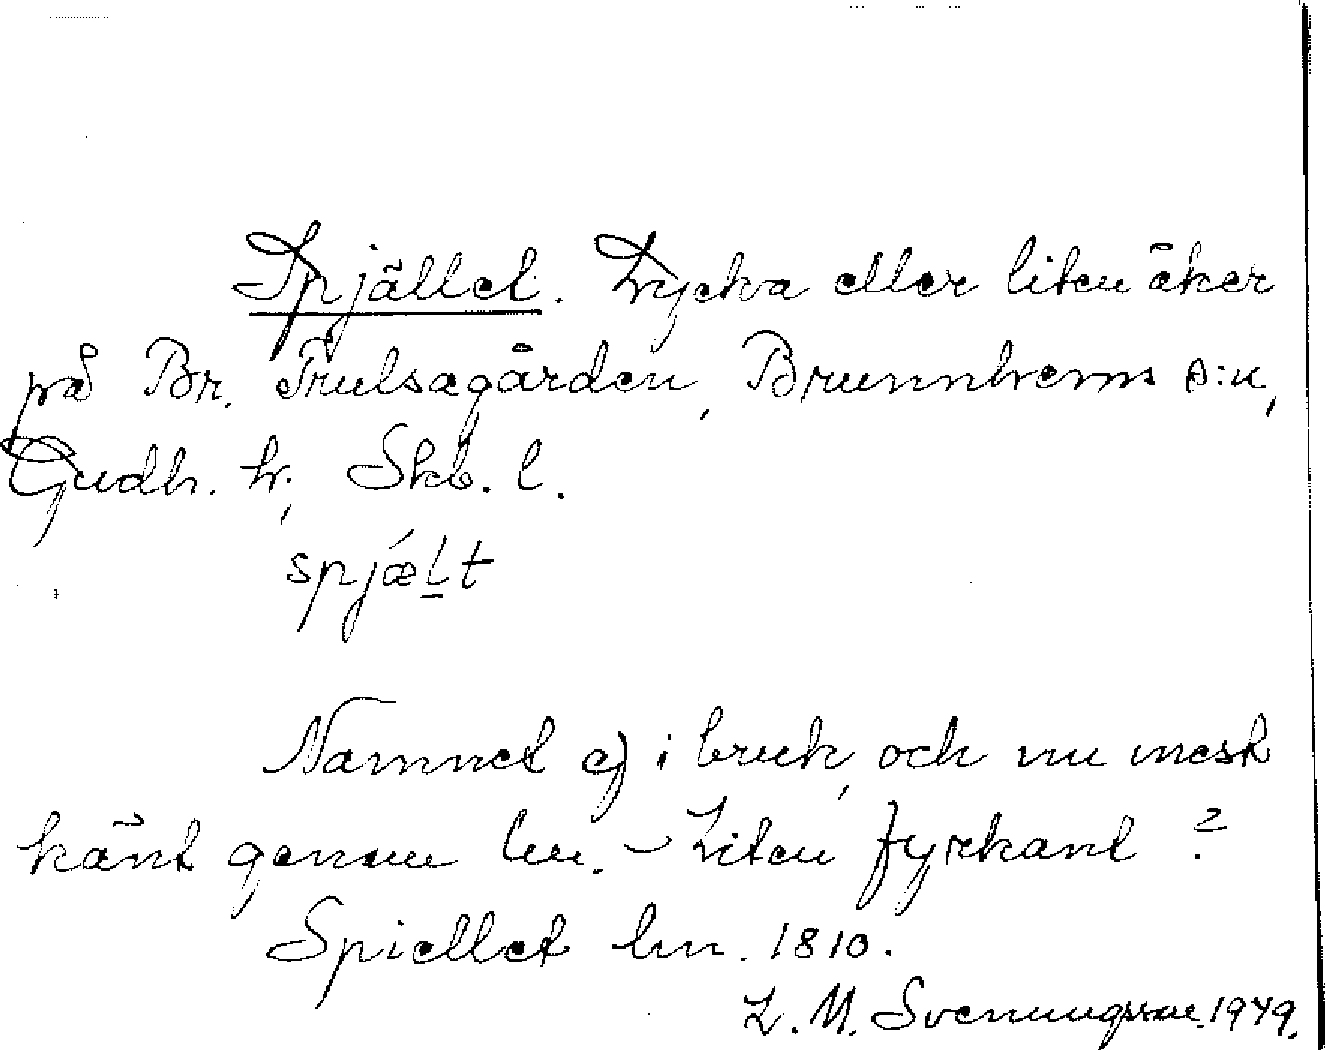 Spjället. Lycka eller liten åker
på Br. Trulsagården, Brunnhems s:n,
Gudh. h., Skb. l.
spjǽḻt
Namnet ej i bruk, och nu mest
känt genom lm. – Liten fyrkant?
Spiellet lm. 1810.
L. M. Svenungsson. 1949.